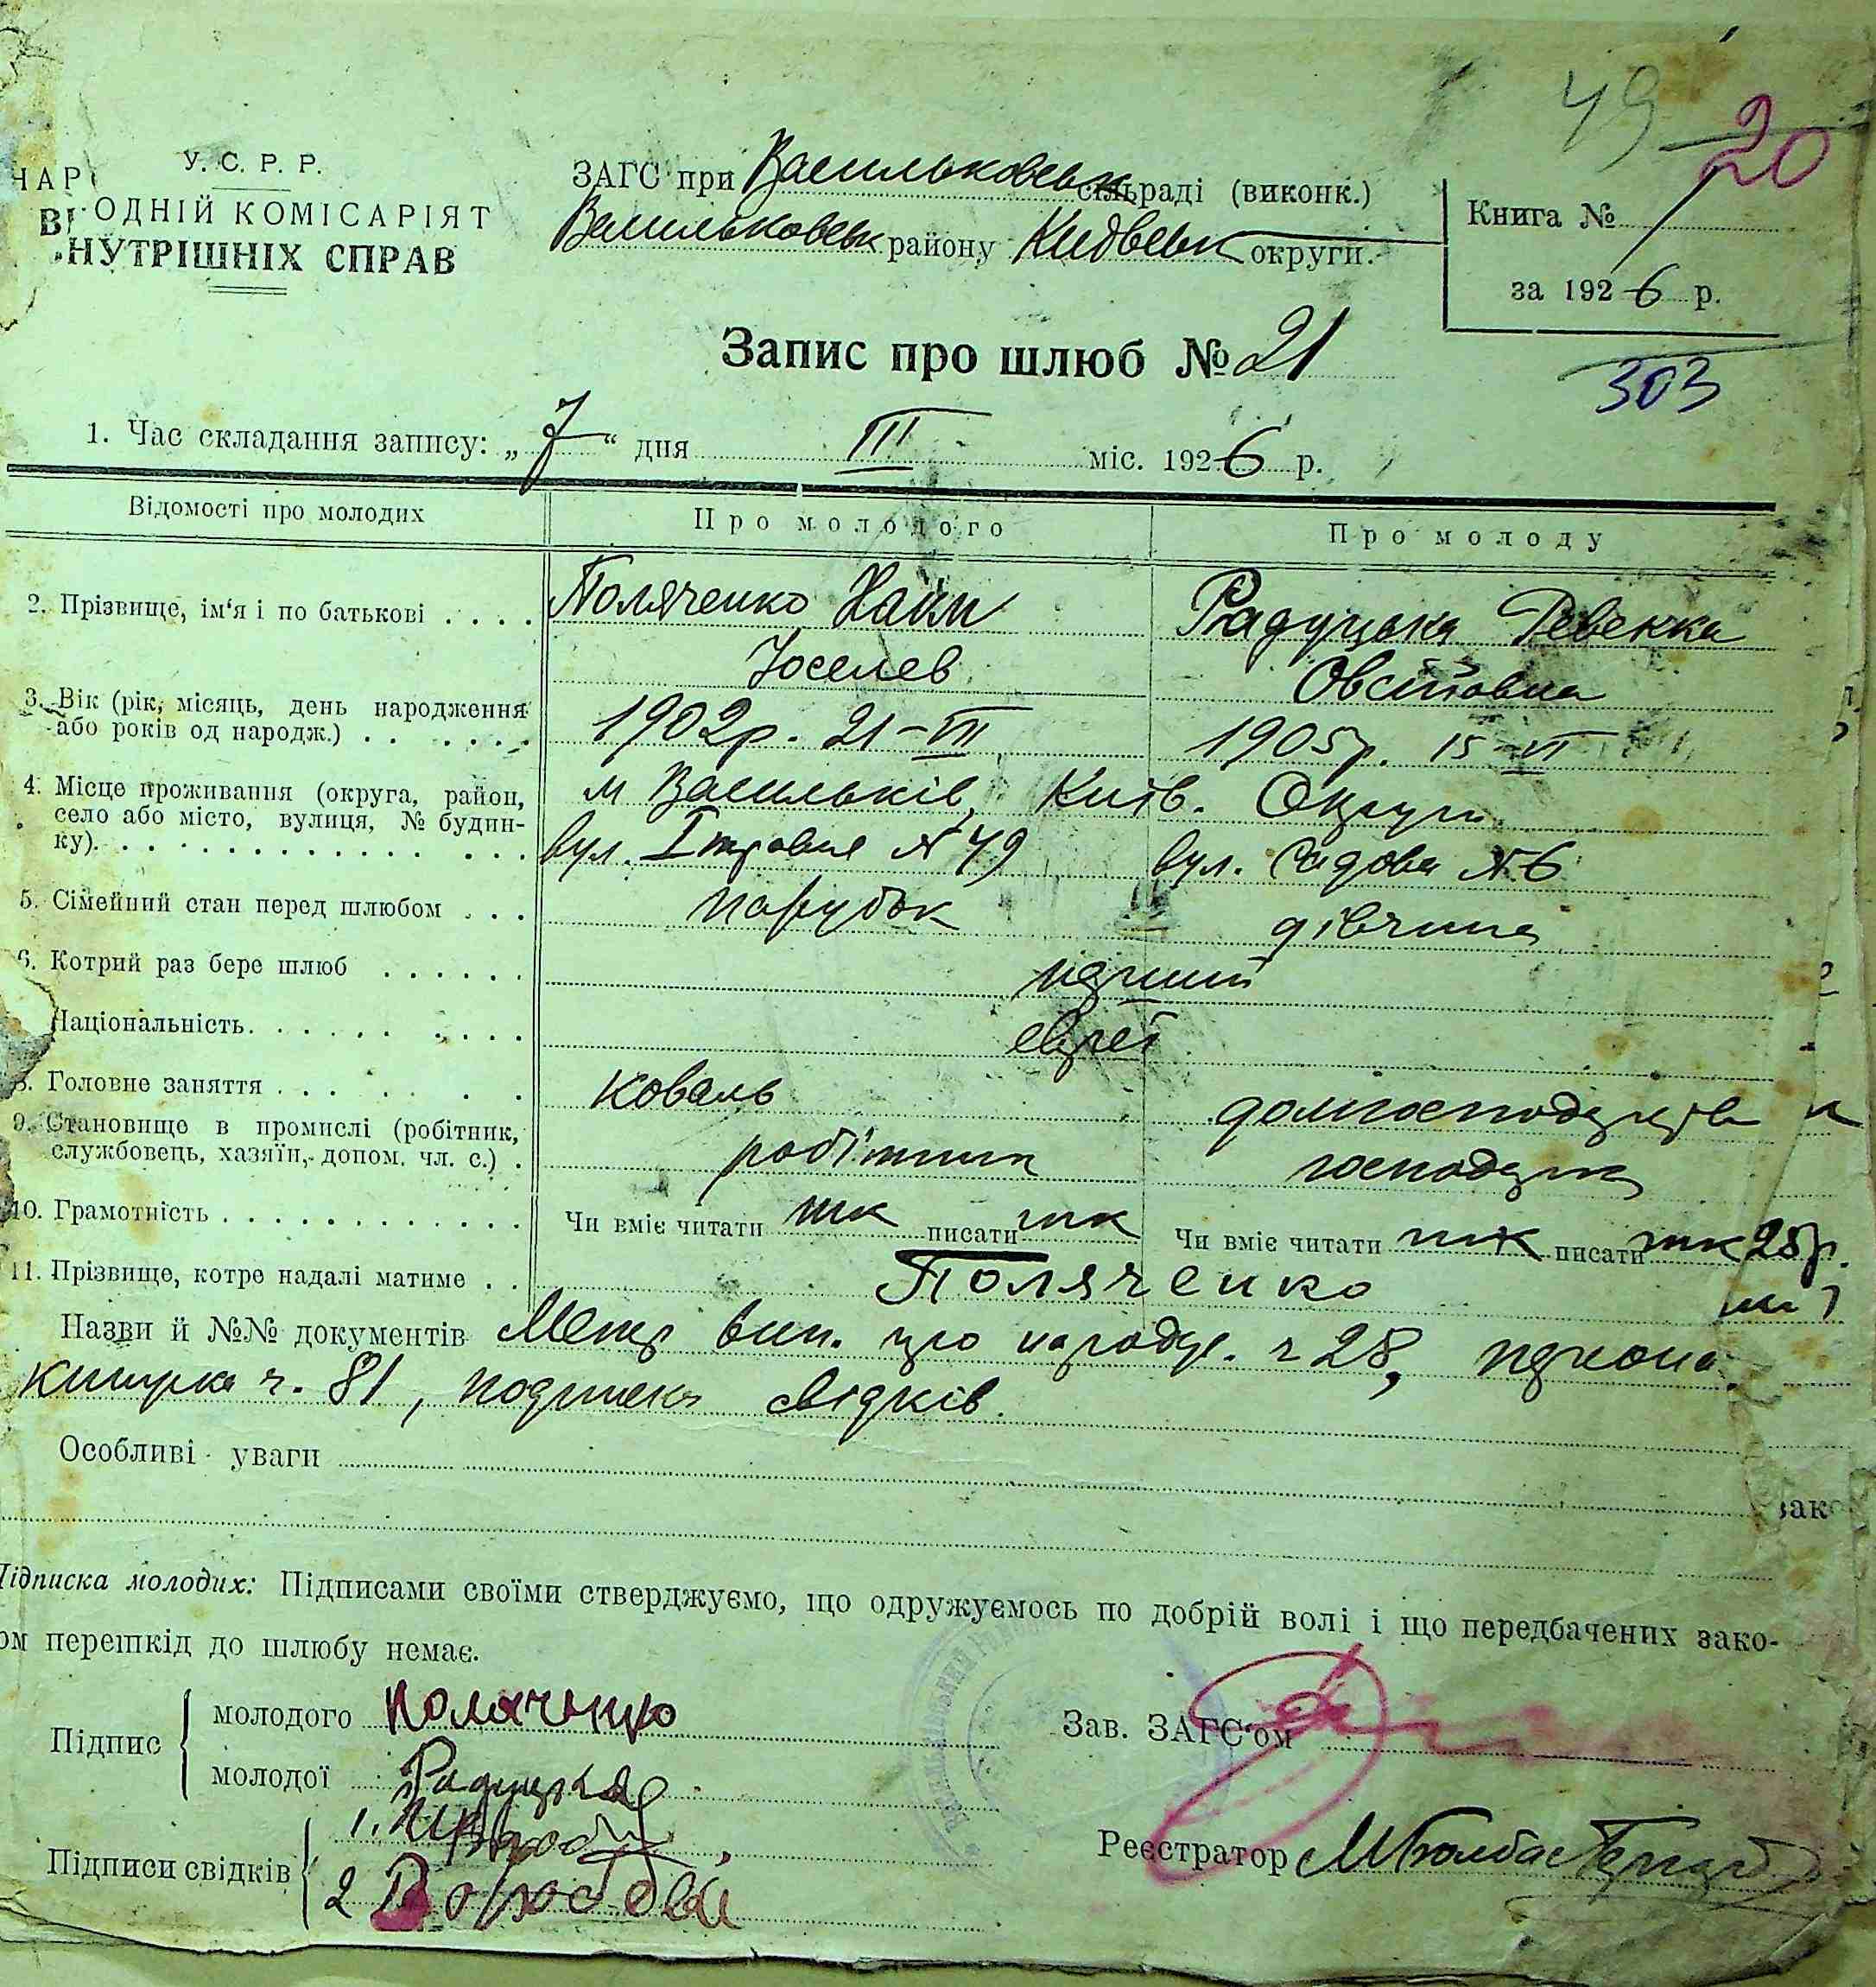 49 20
У. С. Р. Р.
НАРОДНІЙ КОМІСАРІЯТ
ВНУТРІШНІХ СПРАВ
ЗАГС при Васильковськ сільраді (виконк.)
Васильковськ району Київськ округи.
Книга №
за 1926 р.
Запис про шлюб № 21
303
1. Час складання запису: „7“ дня III міс. 1926 р.
Відомості про молодих Про молодого Про молоду
2. Прізвище, ім‘я і по батькові . . . . Поляченко Хаим Радуцька Ревекка
Йоселев Овсіївна
3. Вік (рік, місяць, день народження
або років од народж.) . . . . . . 1902р. 21-VII 1905р. 15-VI
4. Місце проживання (округа, район,
село або місто, вулиця, № будин-
ку). . . . . . . . . . . . . . . м Васильків, Київ. Округи
вул. I травня № 49 вул. Садова № 6
5. Сімейний стан перед шлюбом . . . парубок дівчина
6. Котрий раз бере шлюб . . . . . . перший
Національність. . . . . . . . . . євреї
8. Головне заняття . . . . . . . коваль домгосподарств
9. Становище в промислі (робітник,
службовець, хазяїн, допом. чл. с.) . робітник господарка
10. Грамотність . . . . . . . . . . . . Чи вміє читати так писати так Чи вміє читати так писати так 25р.
11. Прізвище, котре надалі матиме . . Поляченко
Назви й №№ документів Метр вип. про народж. ч 28, призовна
книжка ч. 81, подписка свідків.
Особливі уваги
зако
Підписка молодих: Підписами своїми стверджуємо, що одружуємось по добрій волі і що передбачених зако-
ом перешкід до шлюбу немає.
Підпис
молодого Поляченко
молодої Радуцкая
Зав. ЗАГС‘ом
Підписи свідків
1.
2
Реєстратор